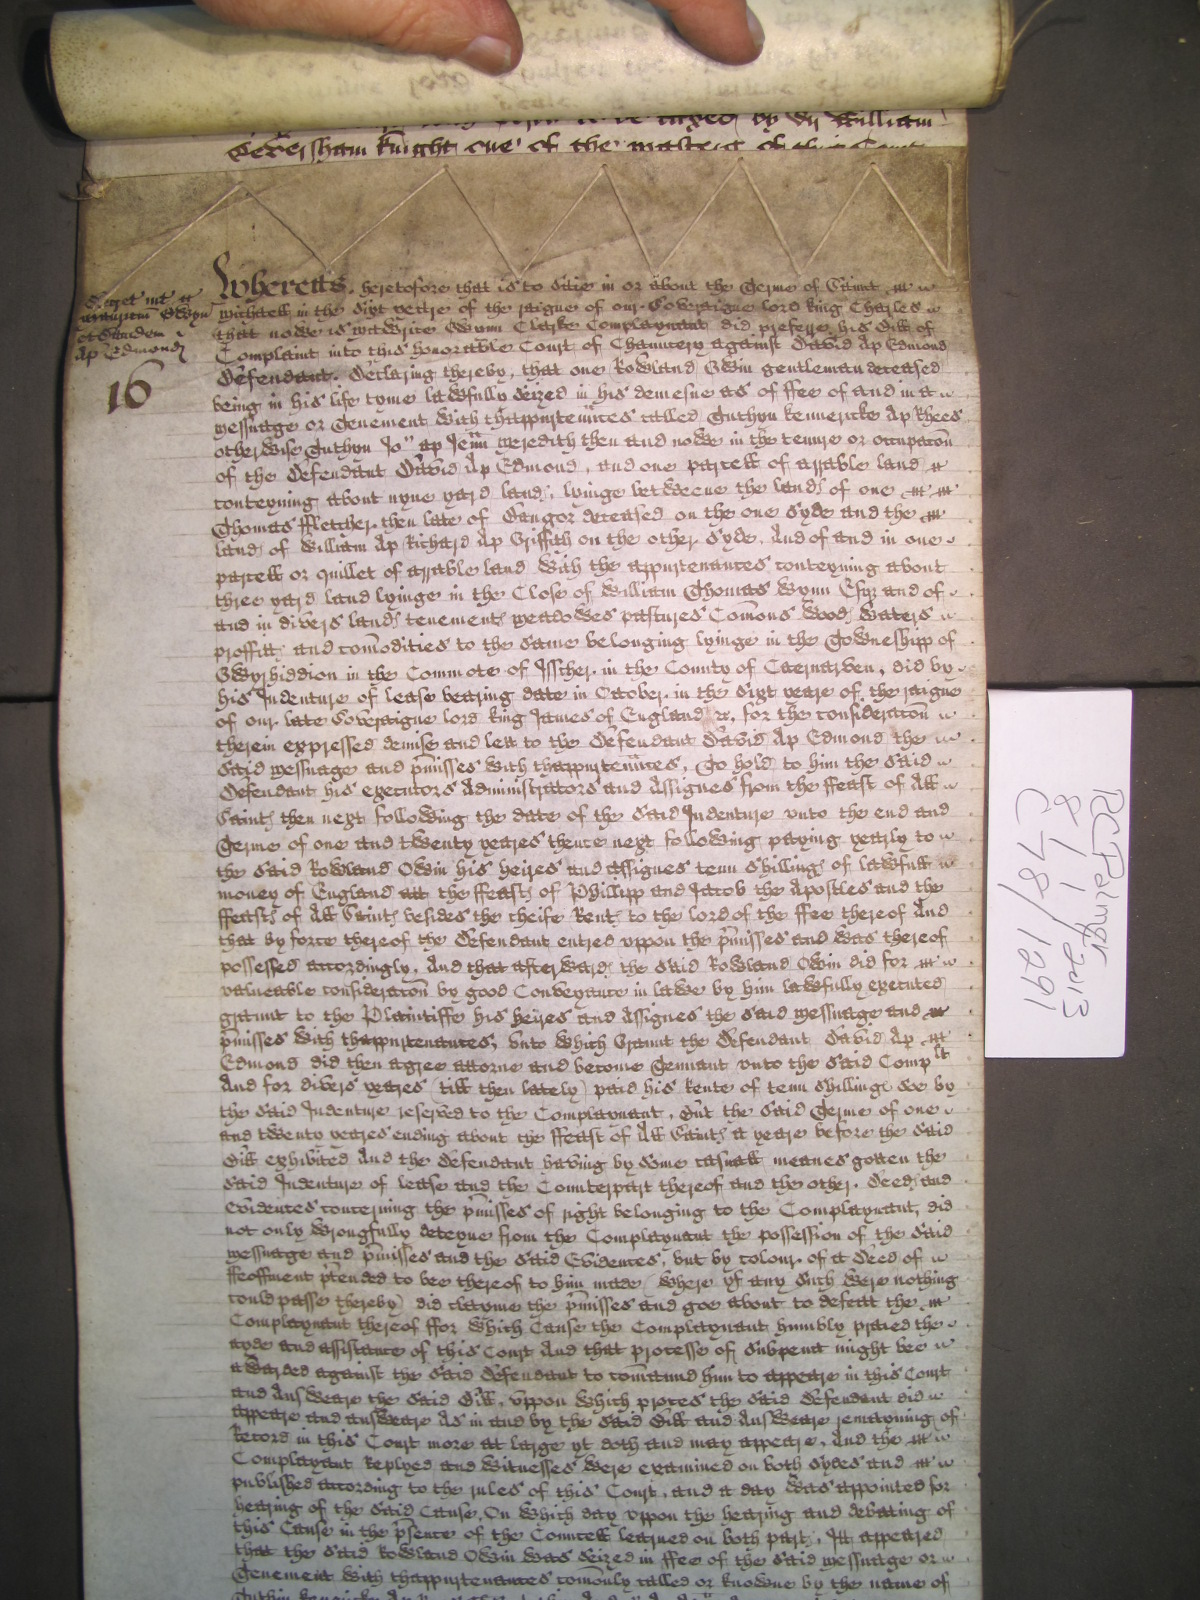 to be taxed by Sr William
Beversham knight one of the masters of this Court
Whereas heretofore that is to saie in or about the Terme of Saint
Michaell in the sixt yeare of the raigne of our Soveraigne lord king Charles
that nowe is Mawrice Owinn Clarke Complaynant did preferre his Bill of
Complaint into this honorable Court of Chauncery against David Ap Edmond
Defendant. Declaring thereby, that one Rowland Owin gentleman deceased
being in his life tyme lawfully seized in his demesne as of ffee of and in a
messuage or Tenement with thappurtenñces called Tuthyn kennericke Ap Rhees
otherwise Tuthyn Jon ap Jeun meredith then and nowe in the tenure or occupacõn
of the Defendant David Ap Edmond, and one parcell of arrable land
conteyning about nyne yard land, lyinge betweene the lands of one
Thomas ffletcher then late of Bangor deceased on the one syde and the
lands of William Ap Richard Ap Griffith on the other syde. And of and in one
parcell or quillet of arrable land with the appurtenances conteyning about
three yard land lyinge in the Close of William Thomas Wynn Esqr and of
and in divers lands tenements meadowes pastures Com̃ons woods waters
proffitts and com̃odities to the same belonging lyinge in the Towneshipp of
in the Commote of Isscher in the County of Caernarven, did by
his Indenture of lease bearing date in October in the sixt yeare of the raigne
of our late Soveraigne lord king James of England &c. for the consideracõn
therein expressed demise and lett to the Defendant David Ap Edmond the
said messuage and p̃misses with thappurtenñces, To hold to him the said
Defendant his executors Administrators and Assignes from the ffeast of All
Saints then next following the date of the said Indenture unto the end and
Terme of one and twenty yeares thence next following paying yearly to
the said Rowland Owin his heires and assignes tenn shillings of lawfull
money of England att the ffeasts of Phillipp and Jacob the Apostles and the
ffeasts of All Saints besides the cheife Rent to the lord of the ffee thereof And
that by force thereof the Defendant entred uppon the p̃misses and was thereof
possessed accordingly, And that afterwards the said Rowland Owin did for
valueable consideracõn by good Conveyance in lawe by him lawfully executed
graunt to the Plaintiffe his heires and Assignes the said messuage and
p̃misses with thappurtenances, unto which Graunt the Defendant David Ap
Edmond did then agree attorne and become Tennant unto the said Complt
And for divers yeares (till then lately) paid his Rente of tenn shillings soe by
the said Indenture reserved to the Complaynant, But the said Terme of one
and twenty yeares ending about the ffeast of All Saints a yeare before the said
Bill exhibited And the Defendant having by some casuall meanes gotten the
said Indenture of lease and the Counterpart thereof and the other Deeds and
Evidences concerning the p̃misses of right belonging to the Complaynant, did
not only wrongfully deteyne from the Complaynant the possession of the said
messuage and p̃misses and the said Evidences, but by colour of a Deed of
ffeoffment p̃tended to bee thereof to him made (where yf any such were nothing
could passe thereby) did clayme the p̃misses and goe about to defeat the
Complaynant thereof ffor which Cause the Complaynant humbly praied the
ayde and assistance of this Court And that processe of subpena might bee
awarded against the said Defendant to com̃aund him to appeare in this Court
and Answeare the said Bill, uppon which proces the said Defendant did
appeare and answeare As in and by the said Bill and Answeare remayning of
Record in this Court more at large yt doth and may appeare, And the
Complaynant Replyed and witnesses were examined on both sydes and
published according to the rules of this Court, and a day was appointed for
hearing of the said Cause, On which day uppon the hearing and debating of
this Cause in the p̃sence of the Councell learned on both parts, Itt appeared
that the said Rowland Owin was seized in ffee of the said messuage or
Tenement with thappurtenances com̃only called or knowne by the name of
Tuthin kenericke Ap
int
Mauricium Owyn
et David
Ap Edmond
16
RCPalmer
8/1/2013
C78/1291